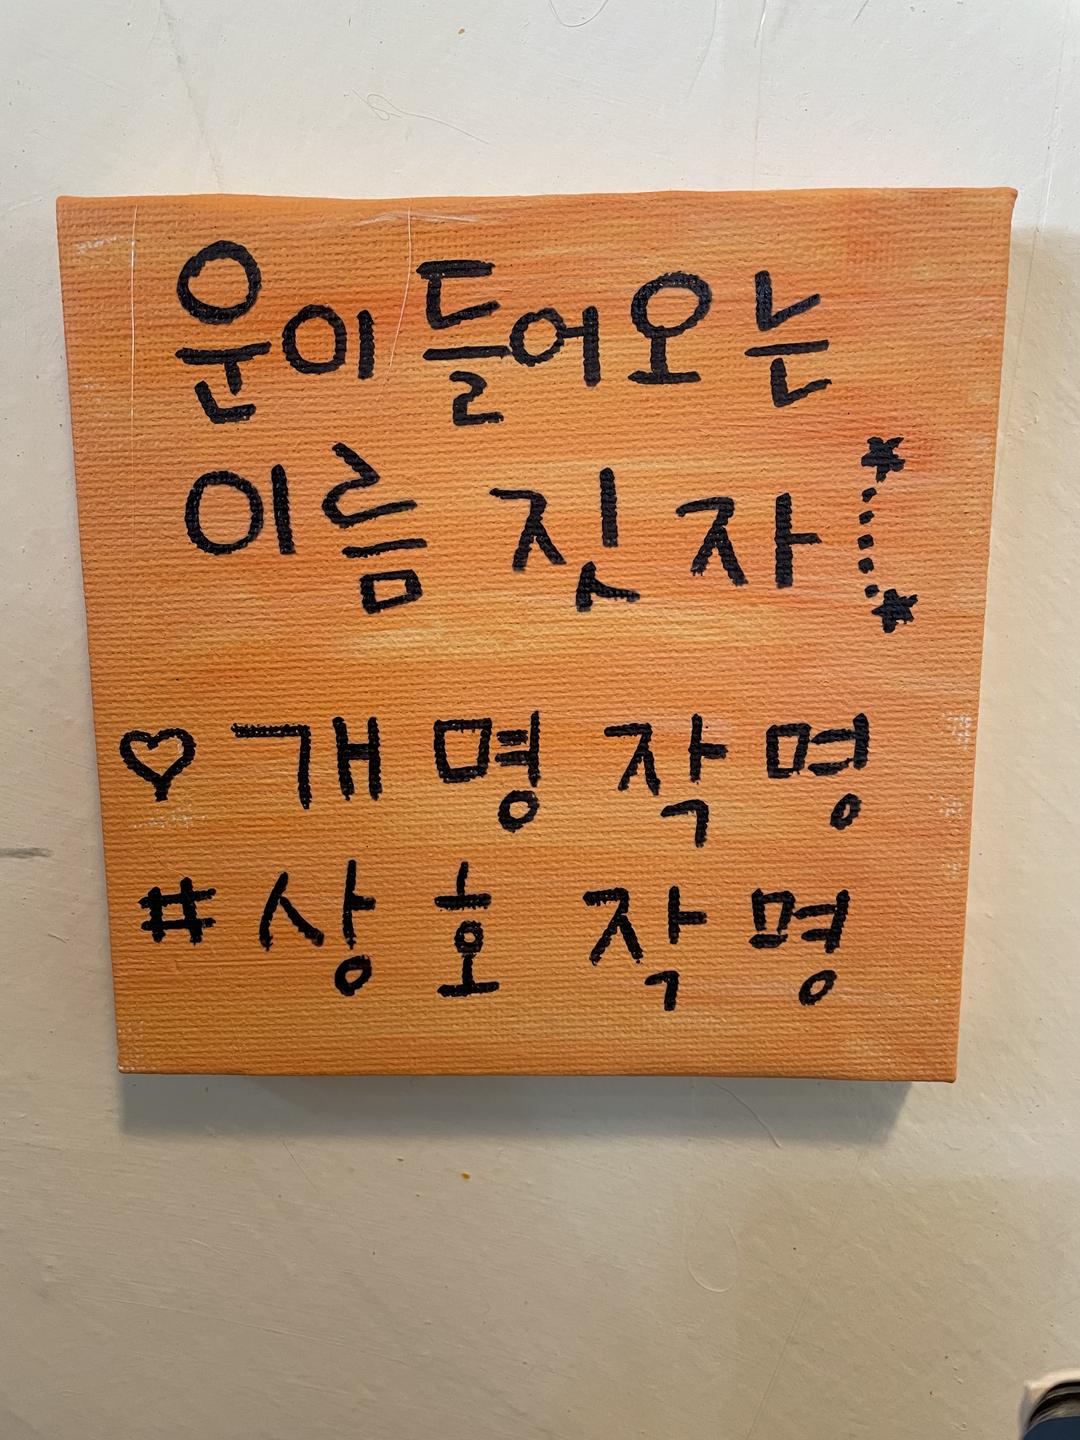 운이 들어오는
이름 짓자
♡ 개명 작명
# 상호 작명